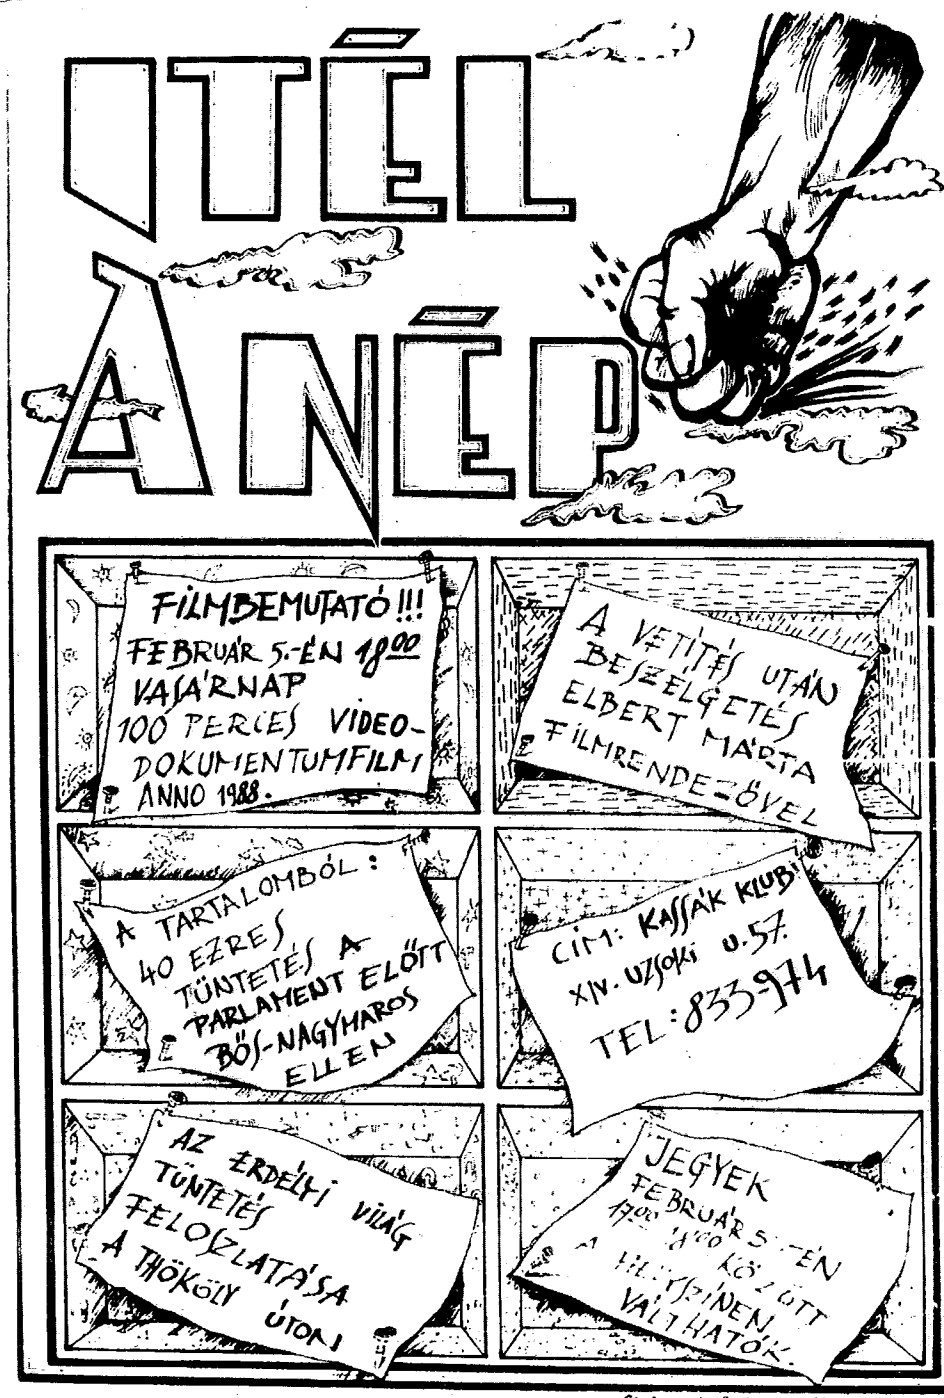 ITÉL
A NÉP
FILMBEMUTATÓ!!!
FEBRUÁR 5.-ÉN 18⁰⁰
VASÁRNAP
100 PERCES VIDEO-
DOKUMENTUMFILM
ANNO 1988.
A VETÍTÉS UTÁN
BESZÉLGETÉS
ELBERT MÁRTA
FILMRENDEZŐVEL
A TARTALOMBÓL:
40 EZRES
TÜNTETÉS A
PARLAMENT ELŐTT
BŐS-NAGYMAROS
ELLEN
CÍM: KASSÁK KLUB!
XIV. UZSOKI U. 57.
TEL: 833-974
AZ ERDÉLYI VILÁG
TÜNTETÉS
FELOSZLATÁSA
A THÖKÖLY ÚTON
JEGYEK
FEBRUÁR 5-ÉN
17⁰⁰ 18⁰⁰ KÖZÖTT
A HELYSZÍNEN
VÁLTHATÓK.